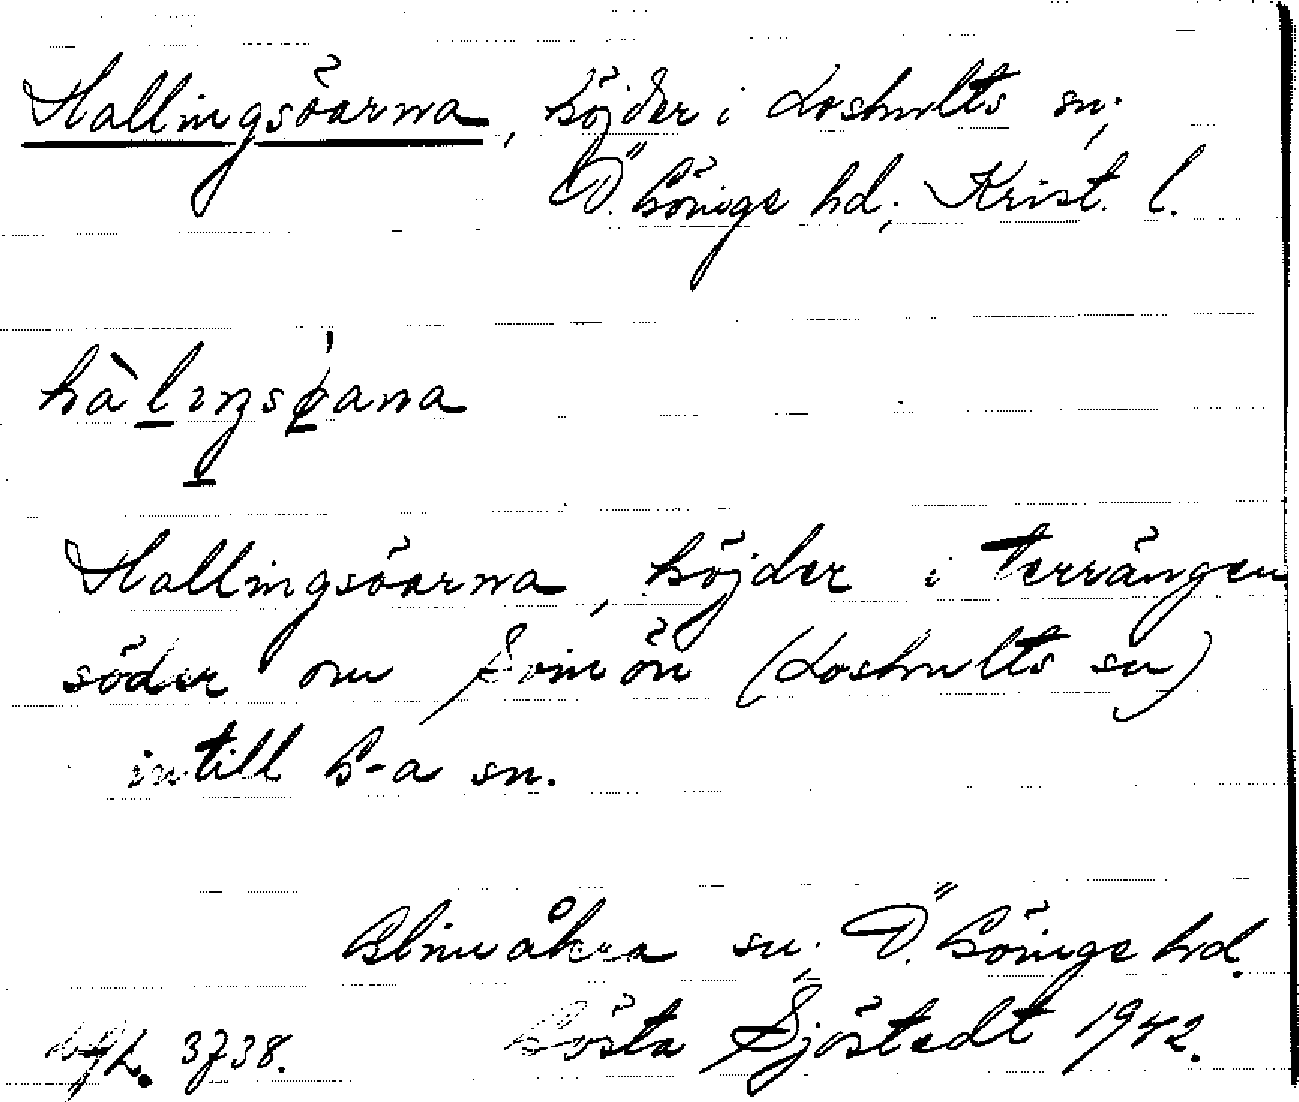 Hallingsöarna, höjder i Loshults sn;
Ö. Göinge hd; Krist. l.
Hallingsöarna, höjder i terrängen
söder om Svinön (Loshults sn)
intill G-a sn.
Glimåkra sn. Ö. Göinge hd.
3738. Gösta Sjöstedt 1942.